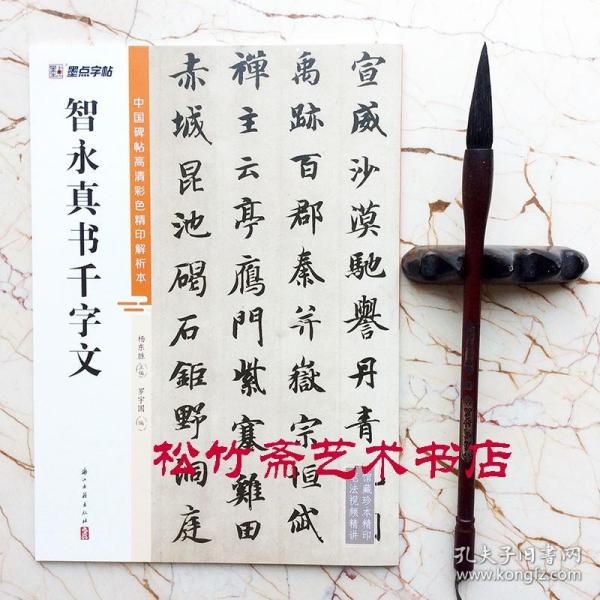 墨点字帖
智永真书千字文
中国碑帖高清彩色精印解析本
杨东胜 主编 罗宇国 编
浙江古籍出版社
宣威沙漠馳譽丹青
禹跡百郡秦并嶽宗恒岱
禪主云亭鴈門紫塞雞田
赤城昆池碣石鉅野洞庭
馆藏珍本精印
笔法视频精讲
松竹斋艺术书店
孔夫子旧书网
www.kongfz.com